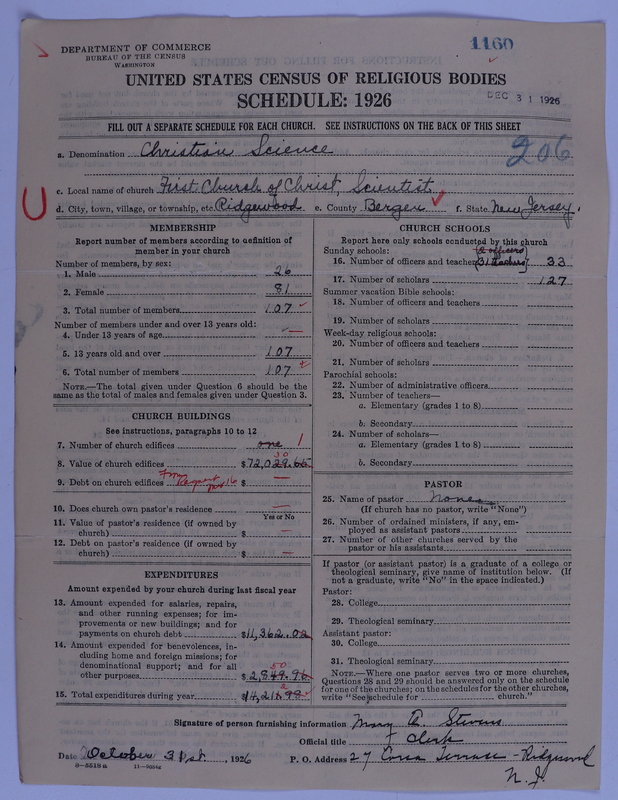 1160
DEPARTMENT OF COMMERCE
BUREAU OF THE CENSUS
WASHINGTON
UNITED STATES CENSUS OF RELIGIOUS BODIES
SCHEDULE: 1926
DEC 31 1926
FILL OUT A SEPARATE SCHEDULE FOR EACH CHURCH. SEE INSTRUCTIONS ON THE BACK OF THIS SHEET
a. Denomination Christian Science
206
c. Local name of church First Church of Christ, Scientist
d. City, town, village, or township, etc. Ridgewood e. County Bergen f. State New Jersey.
MEMBERSHIP
Report number of members according to definition of
member in your church
Number of members, by sex:
1. Male 26
2. Female 81
3. Total number of members 107
Number of members under and over 13 years old:
4. Under 13 years of age —
5. 13 years old and over 107
6. Total number of members 107
NOTE.—The total given under Question 6 should be the
same as the total of males and females given under Question 3.
CHURCH BUILDINGS
See instructions, paragraphs 10 to 12
7. Number of church edifices one 1
8. Value of church edifices $72,029.65
30
9. Debt on church edifices $ —
10. Does church own pastor's residence —
Yes or No
11. Value of pastor's residence (if owned by
church) $ —
12. Debt on pastor's residence (if owned by
church) $ —
EXPENDITURES
Amount expended by your church during last fiscal year
13. Amount expended for salaries, repairs,
and other running expenses; for im-
provements or new buildings; and for
payments on church debt $11,362.02
14. Amount expended for benevolences, in-
cluding home and foreign missions; for
denominational support; and for all
other purposes $2,849.96
50
15. Total expenditures during year $14,211.98
2
CHURCH SCHOOLS
Report here only schools conducted by this church
Sunday schools:
16. Number of officers and teachers [2 officers 31 teachers] 33
17. Number of scholars 127
Summer vacation Bible schools:
18. Number of officers and teachers
19. Number of scholars
Week-day religious schools:
20. Number of officers and teachers
21. Number of scholars
Parochial schools:
22. Number of administrative officers
23. Number of teachers—
a. Elementary (grades 1 to 8)
b. Secondary
24. Number of scholars—
a. Elementary (grades 1 to 8)
b. Secondary
PASTOR
25. Name of pastor None
(If church has no pastor, write "None")
26. Number of ordained ministers, if any, em-
ployed as assistant pastors
27. Number of other churches served by the
pastor or his assistants
If pastor (or assistant pastor) is a graduate of a college or
theological seminary, give name of institution below. (If
not a graduate, write "No" in the space indicated.)
Pastor:
28. College
29. Theological seminary
Assistant pastor:
30. College
31. Theological seminary
NOTE.—Where one pastor serves two or more churches,
Questions 28 and 29 should be answered only on the schedule
for one of the churches; on the schedules for the other churches,
write "See schedule for church."
Signature of person furnishing information Mary A. Stevens
Official title Clerk
Date October 31st, 1926 P. O. Address 27 Terrace - Ridgewood
N. J.
8-5518a 11-9684